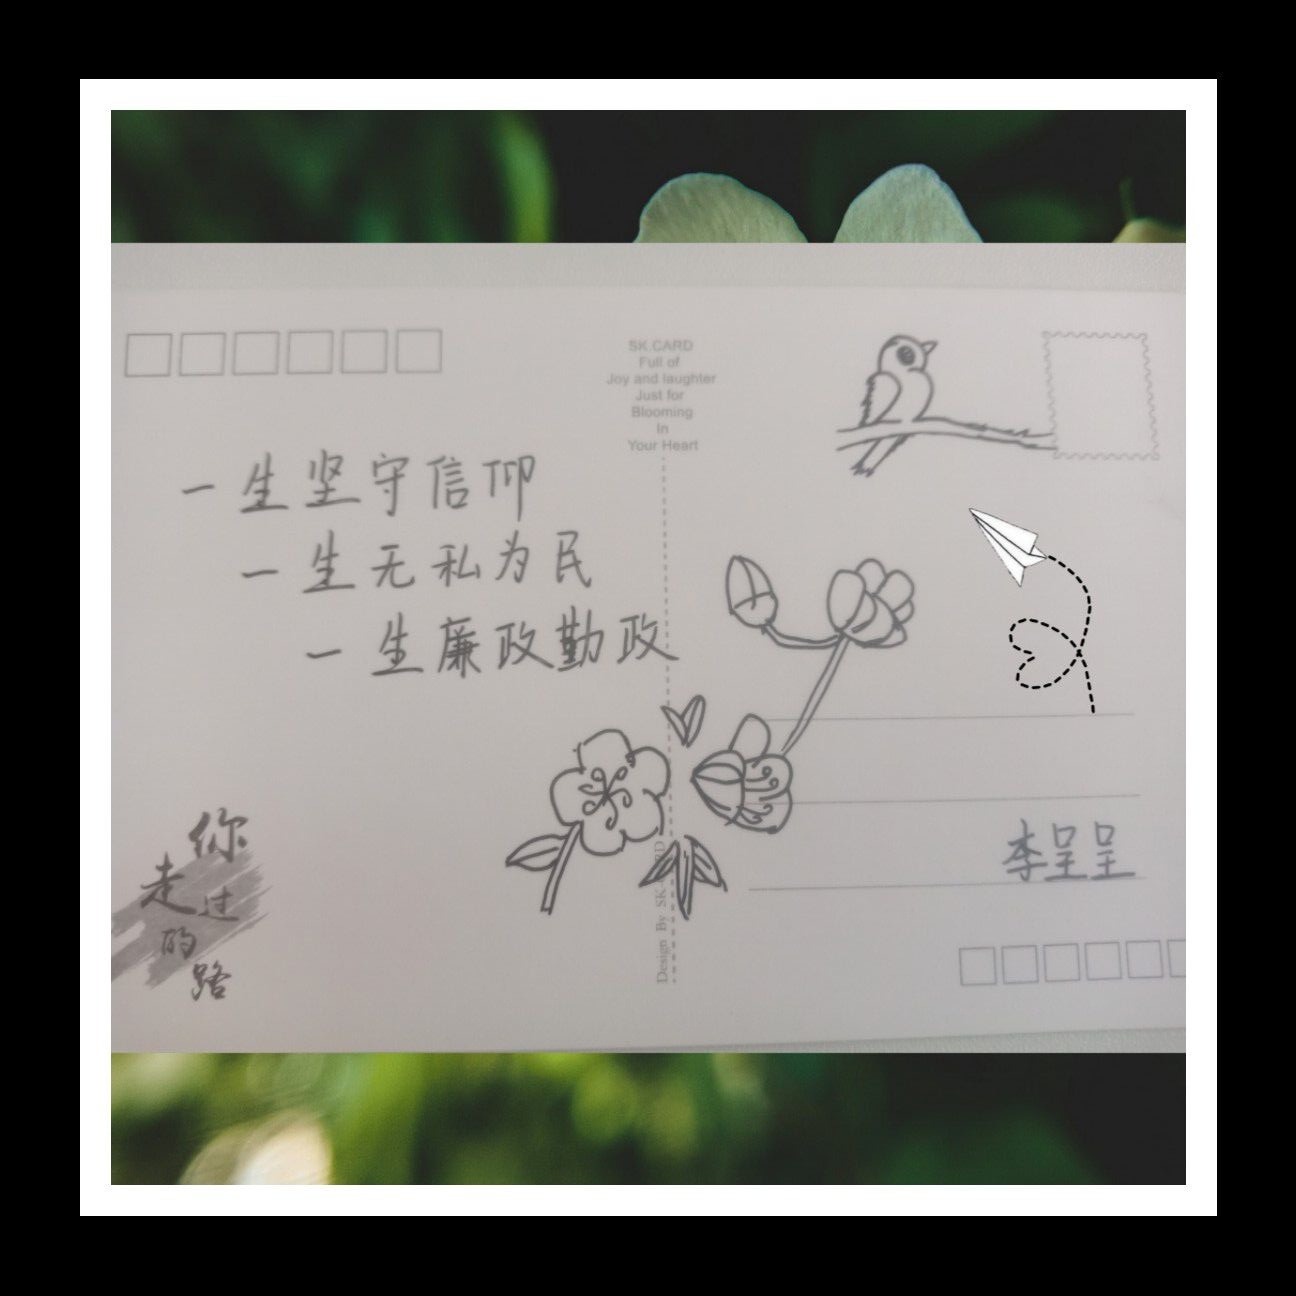 SK.CARD
Full of
Joy and laughter
Just for
Blooming
In
Your Heart
一生坚守信仰
一生无私为民
一生廉政勤政
你
走过
的
路
Design By SK-CARD
李呈呈